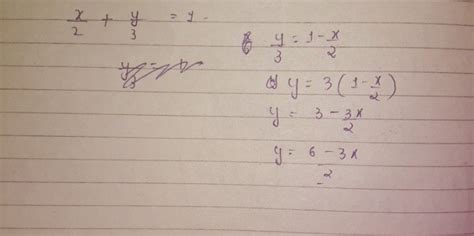 x/2 + y/3 = 1.
y/3 = 1 - x/2
y = 3(1 - x/2)
y = 3 - 3x/2
y = 6 - 3x/2